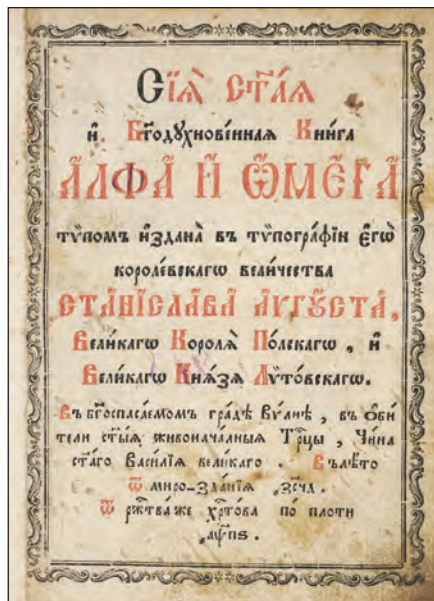 Сїѧ̀ ст҃а́ѧ
и҆ Бг҃одꙋхнове́ннаѧ Кни́га
А҆́ЛФА И҆ Ѡ҆МЕ́ГА
тѵ́помъ и҆здана̀ въ тѵпогра́фїи є҆гѡ̀
короле́вскагѡ вели́чества
СТАНІСЛА́ВА А҆́ѴГꙊСТА,
Вели́кагѡ Королѧ̀ По́лскагѡ, и҆
Вели́кагѡ Кнѧ́зѧ Лѵто́вскагѡ.
Въ бг҃оспаса́емомъ гра́дѣ Ви́лнѣ, въ ѻ҆би
тели ст҃ы́ѧ живонача́лныѧ Трⷪ҇цы, Чи́на
ст҃а́го Васи́лїѧ вели́каго. Въ лѣ́то
ѿ миро-зда́нїѧ ҂зсч҃д.
ѿ рж҃тва́ же хрⷭ҇то́ва по пло́ти
҂аѱ҃пѕ.